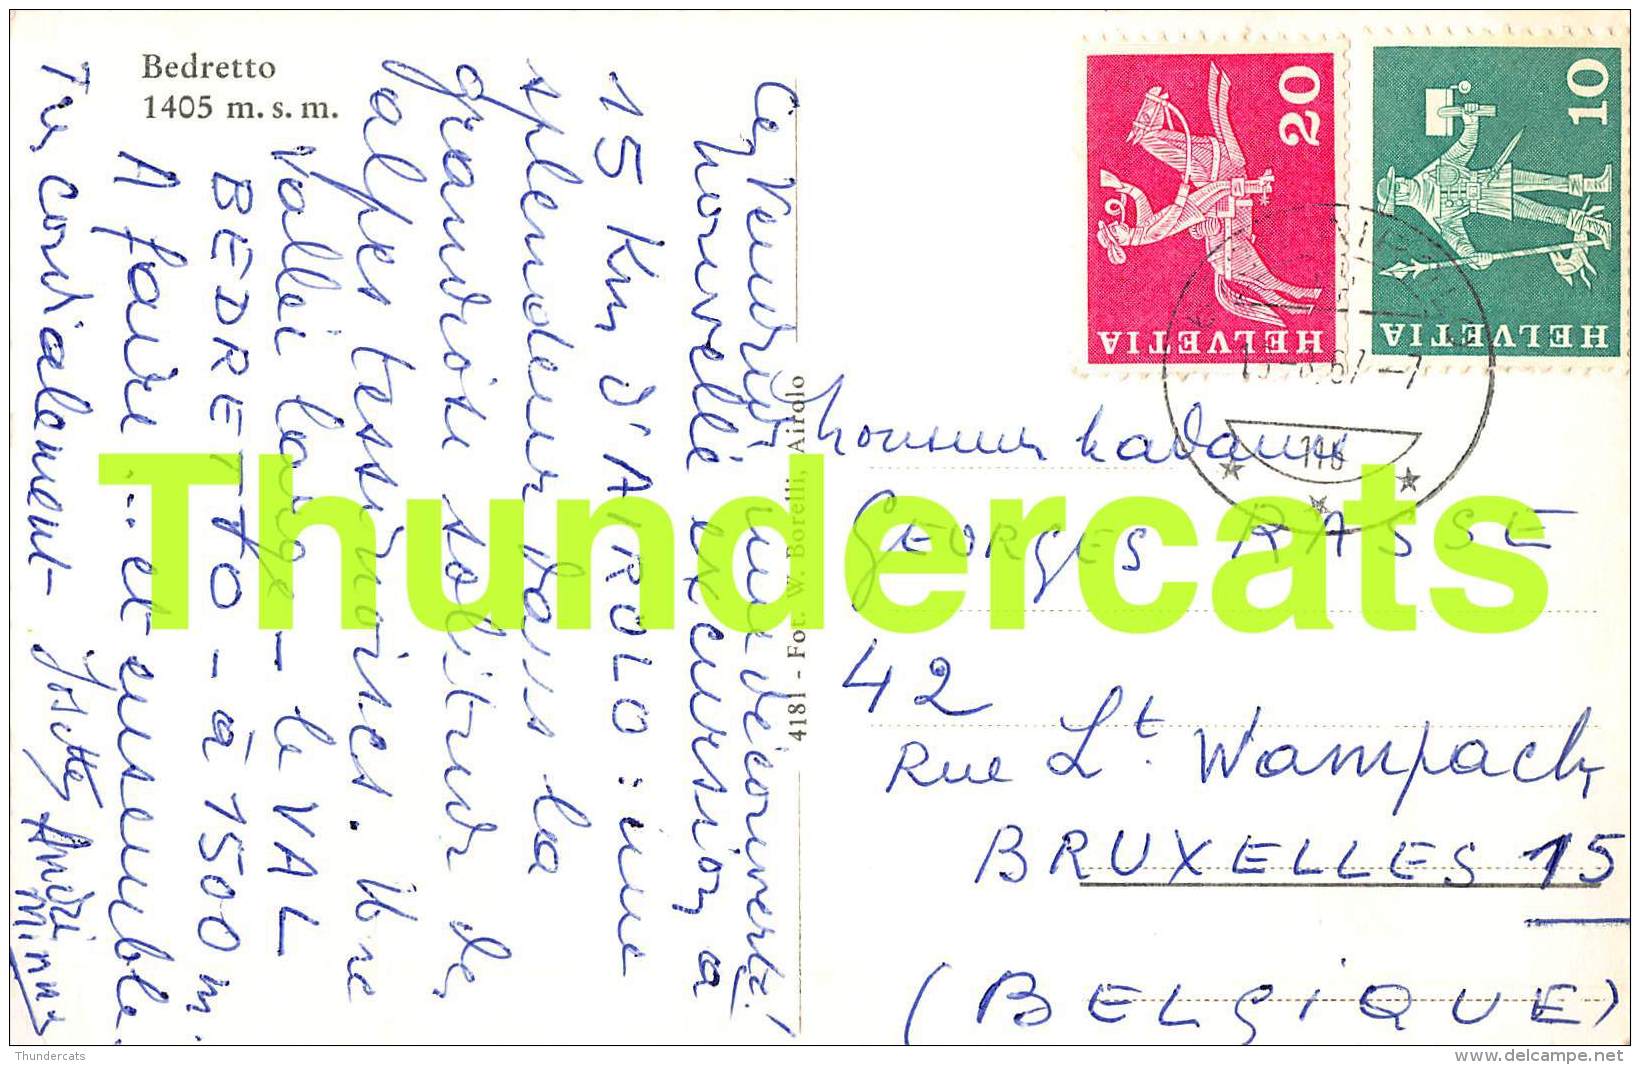 Bedretto
1405 m. s. m.
Ce Vendredi une découverte!
nouvelle excursion à
15 Km d'AIROLO : une
splendeur dans la
grandiose solitude des
alpes tessinoises. Une
Vallée large - le VAL
BEDRETTO - à 1500 m.
A faire ... et ensemble.
Très cordialement Josette André
Minny
4181 - Fot. W. Borelli, Airolo
20
HELVETIA
10
HELVETIA
67-7
Monsieur Madame
GEORGES RASSE
42
Rue Lt. Wampach
BRUXELLES 15
(BELGIQUE)
Thundercats
Thundercats
www.delcampe.net